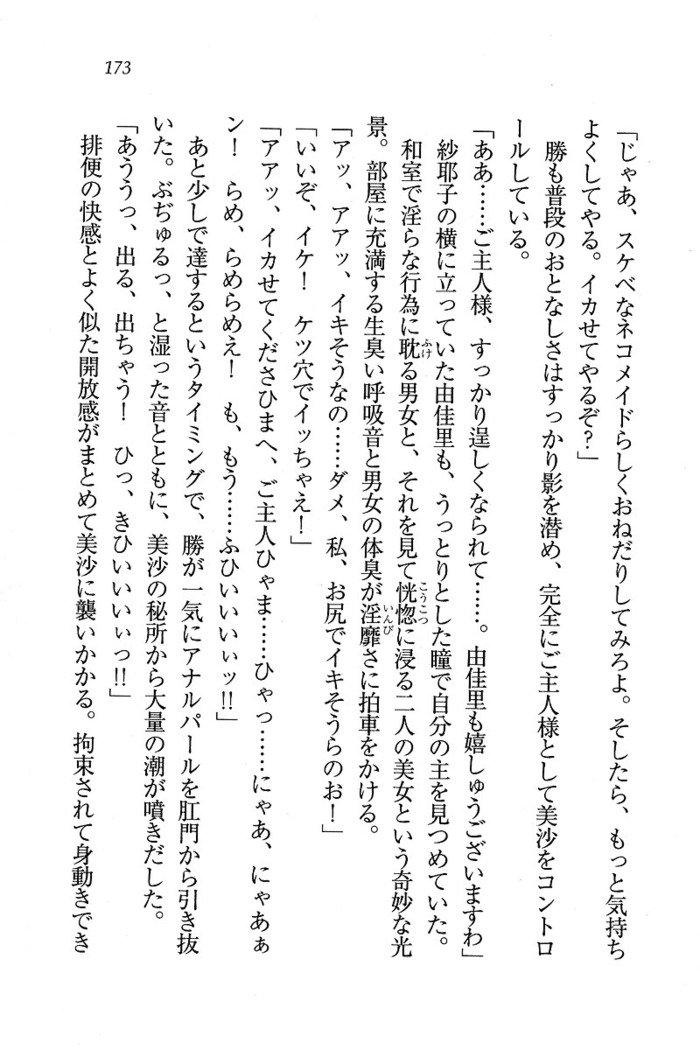 173
「じゃあ、スケベなネコメイドらしくおねだりしてみろよ。そしたら、もっと気持ち
よくしてやる。イカせてやるぞ？」
　勝も普段のおとなしさはすっかり影を潜め、完全にご主人様として美沙をコントロ
ールしている。
「ああ……ご主人様、すっかり逞しくなられて……。由佳里も嬉しゅうございますわ」
　紗耶子の横に立っていた由佳里も、うっとりとした瞳で自分の主を見つめていた。
　和室で淫らな行為に耽る男女と、それを見て恍惚に浸る二人の美女という奇妙な光
景。部屋に充満する生臭い呼吸音と男女の体臭が淫靡さに拍車をかける。
「アッ、アアッ、イキそうなの……ダメ、私、お尻でイキそうらのお！」
「いいぞ、イケ！　ケツ穴でイッちゃえ！」
「アアッ、イカせてくださひまへ、ご主人ひゃま……ひゃっ……にゃあ、にゃあぁ
ン！　らめ、らめらめえ！　も、もう……ふひいいいぃッ!!」
　あと少しで達するというタイミングで、勝が一気にアナルパールを肛門から引き抜
いた。ぶぢゅるっ、と湿った音とともに、美沙の秘所から大量の潮が噴きだした。
「あううっ、出る、出ちゃう！　ひっ、きひいいいぃっ!!」
　排便の快感とよく似た開放感がまとめて美沙に襲いかかる。拘束されて身動きでき